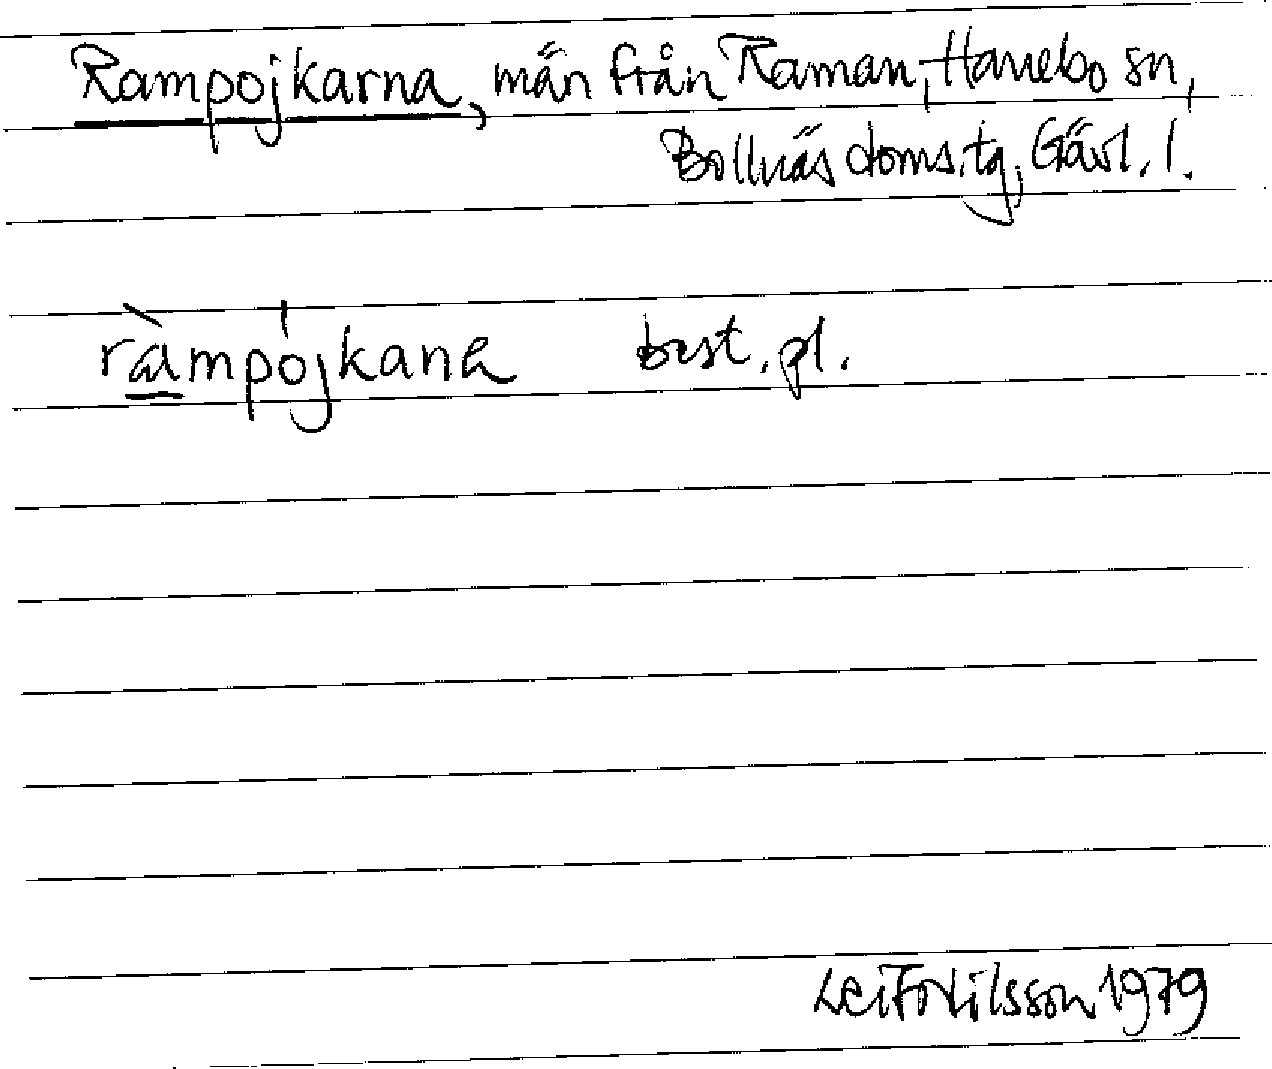 Rampojkarna, män från Raman, Hanebo sn,
Bollnäs doms.tg, Gävl. l.
ràmpójkana best. pl.
Leif Nilsson 1979